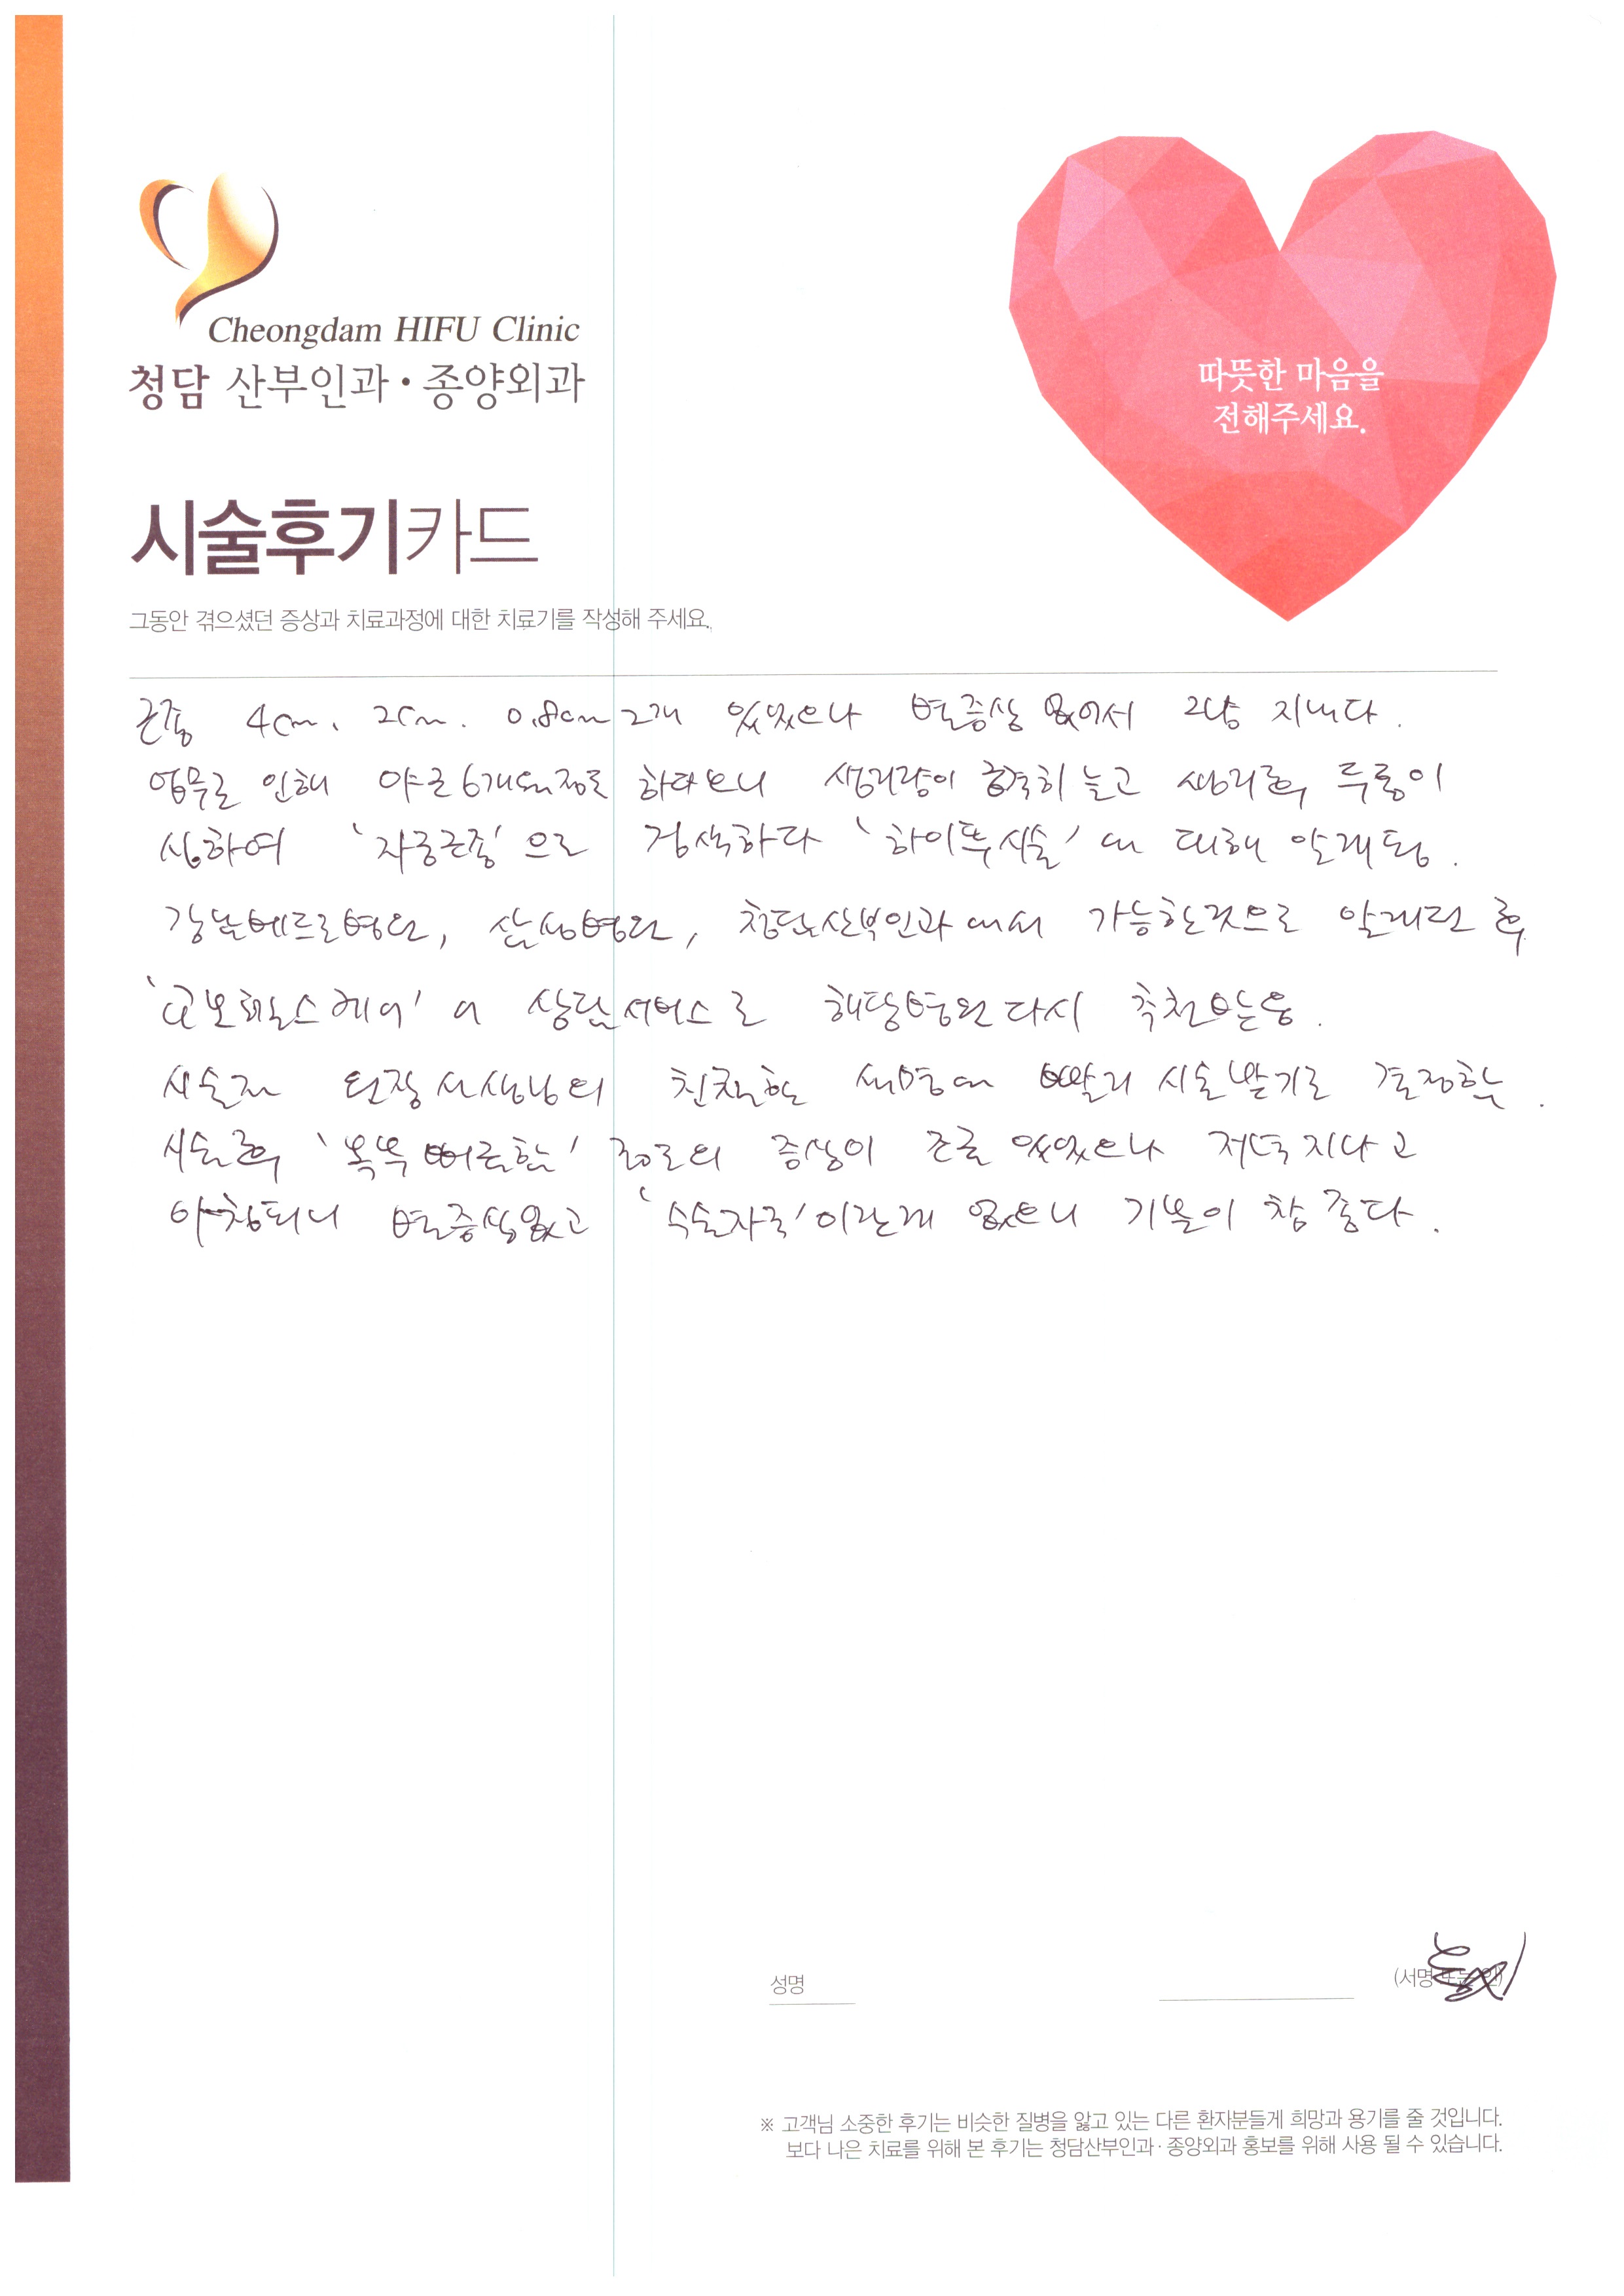 Cheongdam HIFU Clinic
청담 산부인과·종양외과
따뜻한 마음을
전해주세요.
시술후기카드
그동안 겪으셨던 증상과 치료과정에 대한 치료기를 작성해 주세요.
근종 4cm. 2cm. 0.8cm 2개 있었으나 별증상 없어서 그냥 지내다.
업무로 인해 야근 6개월정도 하다보니 생리량이 급격히 늘고 생리후 두통이
심하여 '자궁근종'으로 검색하다 '하이푸시술'에 대해 알게됨.
강남베드로병원, 삼성병원, 청담산부인과에서 가능한것으로 알게된 후
'교보헬스케어'의 상담서비스로 해당병원 다시 추천받음.
시술전 원장선생님의 친절한 설명에 빨리 시술받기로 결정함.
시술후 '복부 뻐근함' 정도의 증상이 조금 있었으나 저녁 지나고
아침되니 별증상없고 '수술자국'이란게 없으니 기분이 참 좋다.
성명
(서명 또는 인)
※ 고객님 소중한 후기는 비슷한 질병을 앓고 있는 다른 환자분들게 희망과 용기를 줄 것입니다.
보다 나은 치료를 위해 본 후기는 청담산부인과·종양외과 홍보를 위해 사용 될 수 있습니다.